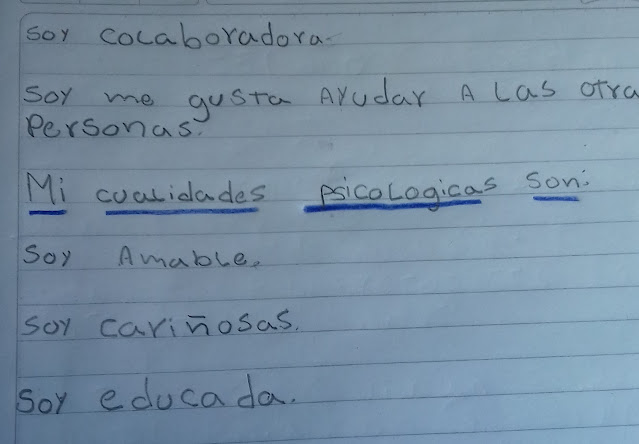 Soy colaboradora.
Soy me gusta Ayudar A Las otra
Personas.
Mi cualidades psicologicas son:
Soy Amable.
Soy cariñosas.
Soy educada.